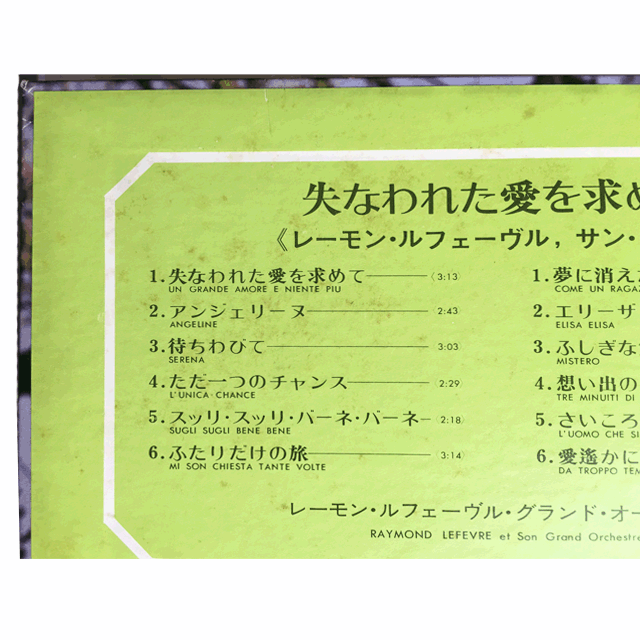 失なわれた愛を求め
《レーモン・ルフェーヴル, サン・
1.失なわれた愛を求めて——〈3:13
UN GRANDE AMORE E NIENTE PIU
2.アンジェリーヌ——2:43
ANGELINE
3.待ちわびて——3:03
SERENA
4.ただ一つのチャンス——〈2:29
L'UNICA CHANCE
5.スッリ・スッリ・バーネ・バーネ—2:18〉
SUGLI SUGLI BENE BENE
6.ふたりだけの旅——〈3:14〉
MI SON CHIESTA TANTE VOLTE
1.夢に消え
COME UN RAGAZ
2.エリーザ
ELISA ELISA
3.ふしぎな
MISTERO
4.想い出の
TRE MINUITI DI
5.さいころ
L'UOMO CHE SI
6.愛遙かに
DA TROPPO TEM
レーモン・ルフェーヴル・グランド・オー
RAYMOND LEFEVRE et Son Grand Orchestre